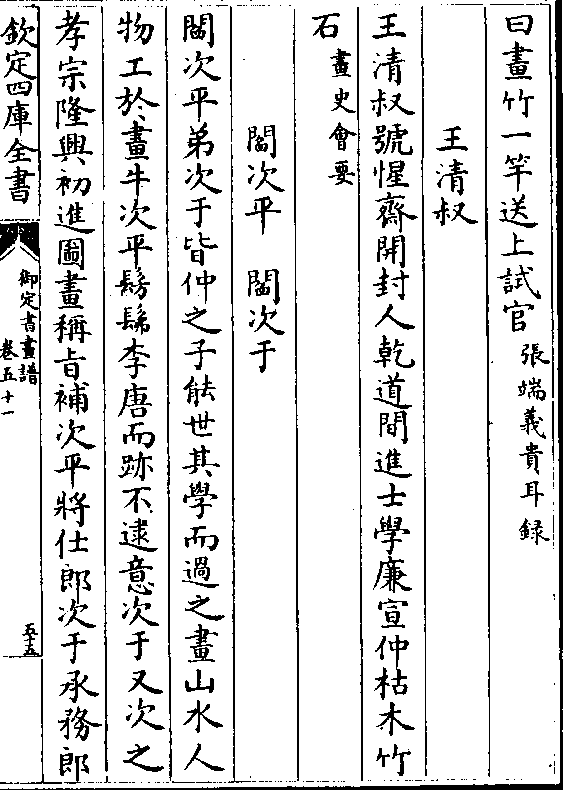 曰畫竹一竿送上試官張端義貴耳録
王清叔
王清叔號惺齋開封人乾道間進士學廉宣仲枯木竹
石畫史會要
閻次平　閻次于
閻次平弟次于皆仲之子能世其學而過之畫山水人
物工於畫牛次平髣髴李唐而跡不逮意次于又次之
孝宗隆興初進圖畫稱旨補次平將仕郎次于承務郎
欽定四庫全書
御定書畫譜
卷五十一
五十五